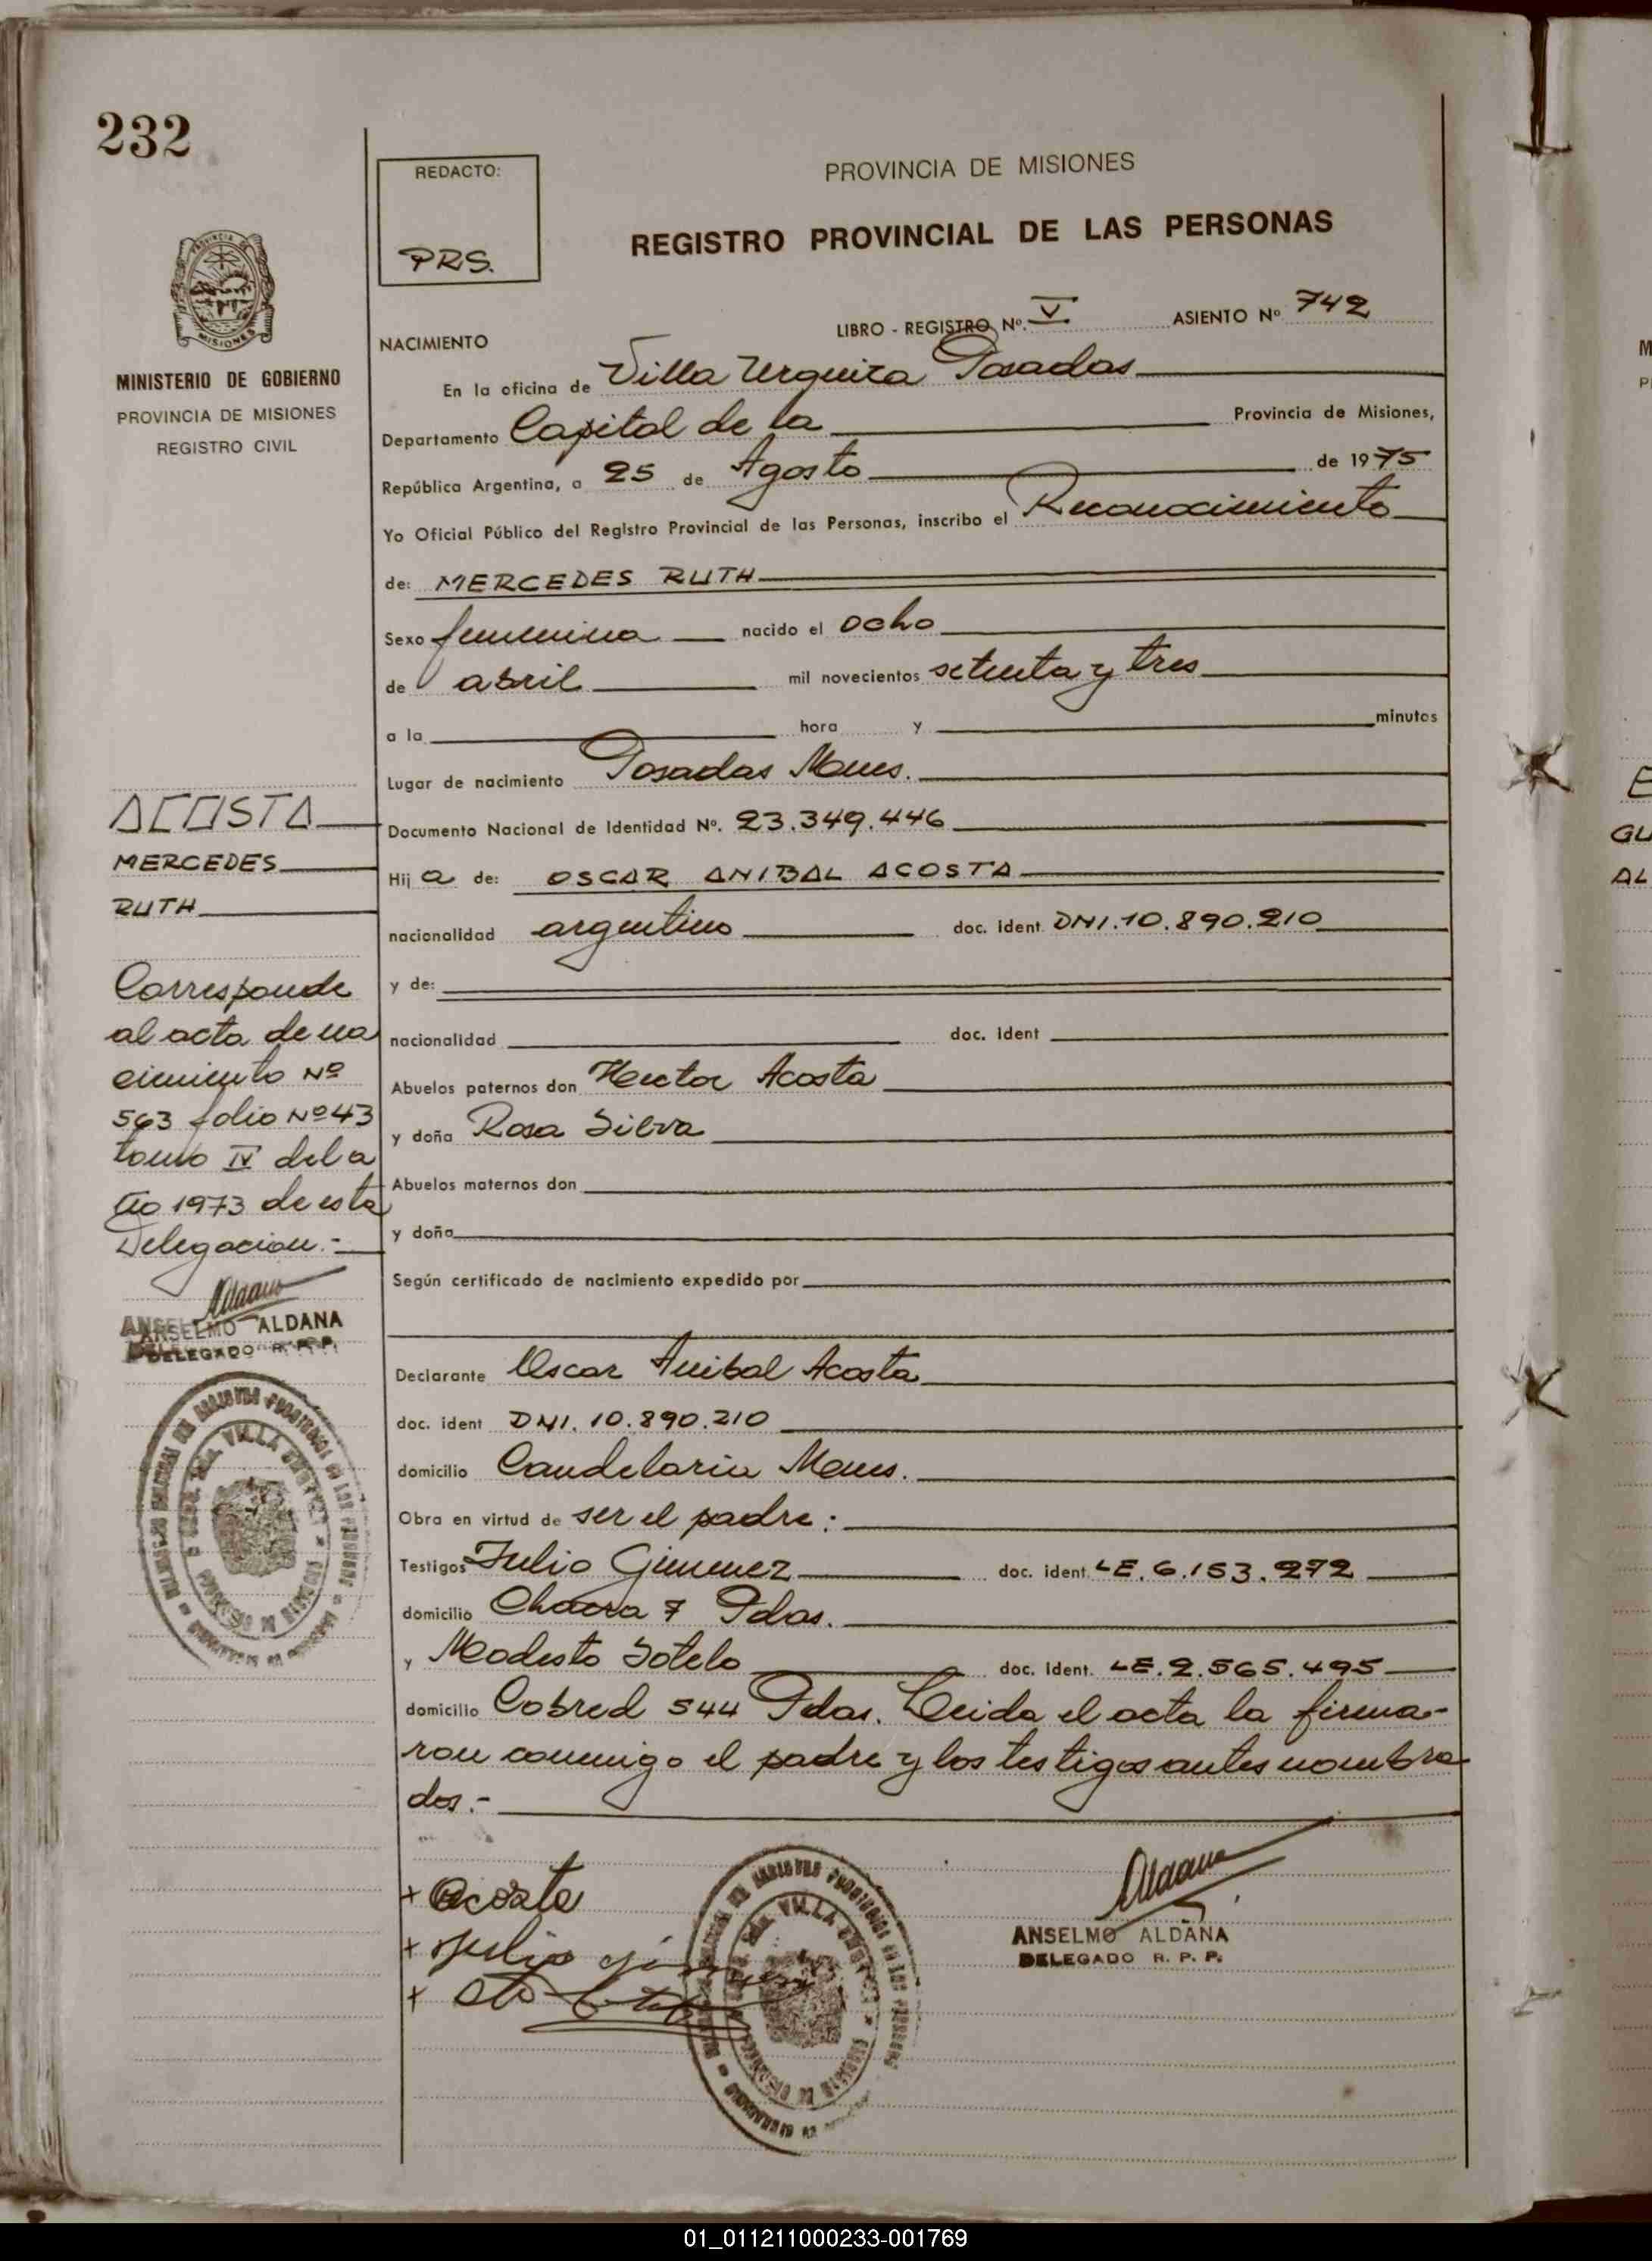 232
REDACTO:
PRS.
PROVINCIA DE MISIONES
REGISTRO PROVINCIAL DE LAS PERSONAS
PROVINCIA DE
MISIONES
MINISTERIO DE GOBIERNO
PROVINCIA DE MISIONES
REGISTRO CIVIL
LIBRO - REGISTRO Nº. V ASIENTO Nº 742
NACIMIENTO
En la oficina de Villa Urquiza Posadas
Departamento Capital de la Provincia de Misiones,
República Argentina, a 25 de Agosto de 1975
Yo Oficial Público del Registro Provincial de las Personas, inscribo el Reconocimiento
de: MERCEDES RUTH
Sexo femenina nacido el ocho
de abril mil novecientos setenta y tres
a la hora y minutos
Lugar de nacimiento Posadas Mnes.
Documento Nacional de Identidad Nº. 23.349.446
Hij a de: OSCAR ANIBAL ACOSTA
nacionalidad argentino doc. ident DNI. 10.890.210
y de:
nacionalidad doc. ident
Abuelos paternos don Hector Acosta
y doña Rosa Silva
Abuelos maternos don
y doña
Según certificado de nacimiento expedido por
Declarante Oscar Anibal Acosta
doc. ident DNI. 10.890.210
domicilio Candelaria Mnes.
Obra en virtud de ser el padre:
Testigos Julio Gimenez doc. ident. LE. 6.153.272
domicilio Chacra 7 Pdas.
y Modesto Sotelo doc. ident. LE. 2.565.495
domicilio 544 Pdas. Leida el acta la firma-
ron conmigo el padre y los testigos antes nombra
dos.-
ACOSTA
MERCEDES
RUTH
Corresponde
al acta de na
cimiento Nº
563 folio Nº 43
tomo IV del a
ño 1973 de esta
Delegacion.-
Aldana
ANSELMO ALDANA
DELEGADO R. P. P.
VILLA URQUIZA
+ Acosta
+ Julio Gimenez
+
VILLA URQUIZA
Aldana
ANSELMO ALDANA
DELEGADO R. P. P.
01_011211000233-001769